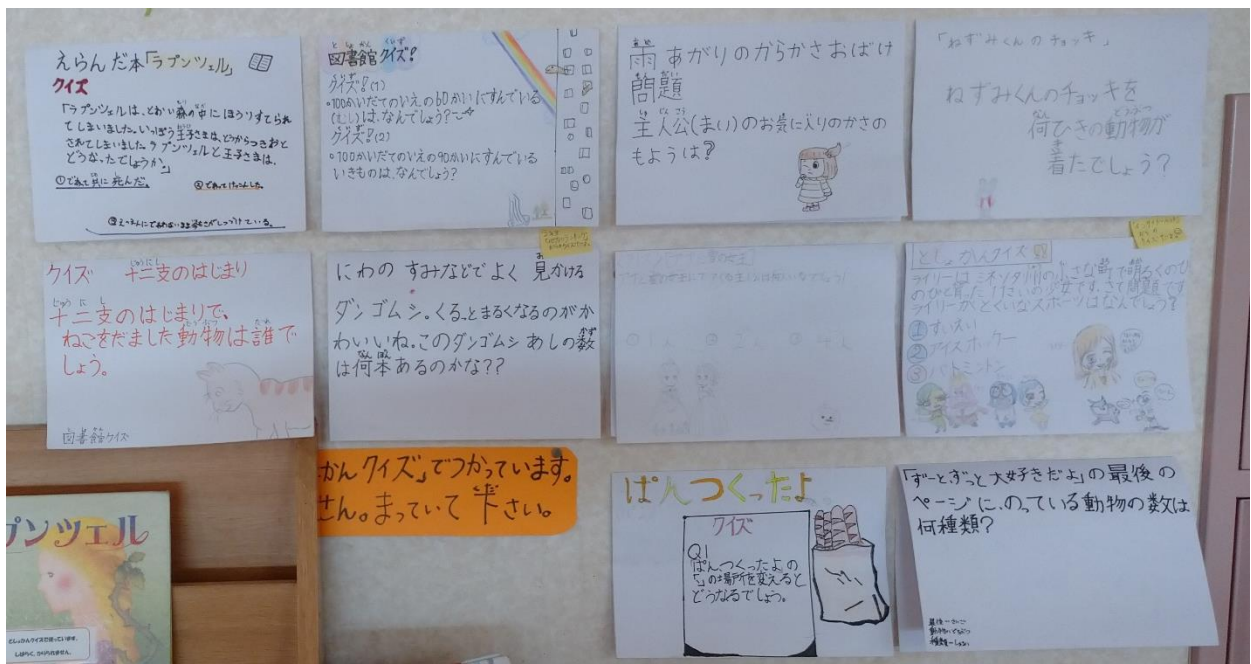 えらんだ本「ラプンツェル」
クイズ
「ラプンツェルは、とおい森の中にほうりすてられ
てしまいました。いっぽう王子さまは、とうからつきおと
されてしまいました。ラプンツェルと王子さまは、
どうなったでしょうか。」
①であって共に死んだ。
②であってけっこんした。
図書館クイズ!
クイズ!(1)
・100かいだてのいえの60かいにすんでいる
(むし)は、なんでしょう?
クイズ!(2)
・100かいだてのいえの90かいにすんでいる
いきものは、なんでしょう?
雨あがりのからかさおばけ
問題
主人公(まい)のお気に入りのかさの
もようは?
「ねずみくんのチョッキ」
ねずみくんのチョッキを
何ひきの動物が
着たでしょう?
クイズ 十二支のはじまり
十二支のはじまりで、
ねこをだました動物は誰で
しょう。
図書館クイズ
にわの すみなどでよく 見かける
ダンゴムシ。くるっとまるくなるのがか
わいいね。このダンゴムシ あしの数
は何本あるのかな??
としょかんクイズ
ライリーはミネソタ州の小さな町で明るくのび
のびと育った11さいの少女です。さて問題です
ライリーがとくいなスポーツはなんでしょう?
①すいえい
②アイスホッケー
③バトミントン
かんクイズ」でつかっています。
さん。まっていて下さい。
ぱんつくったよ
クイズ
Q1
「ぱん、つくったよ」の
「、」の場所を変えると
どうなるでしょう。
「ずーとずっと大好きだよ」の最後の
ページに、のっている動物の数は
何種類?
プンツェル
としょかんクイズで使っています。
しばらく、かりられません。